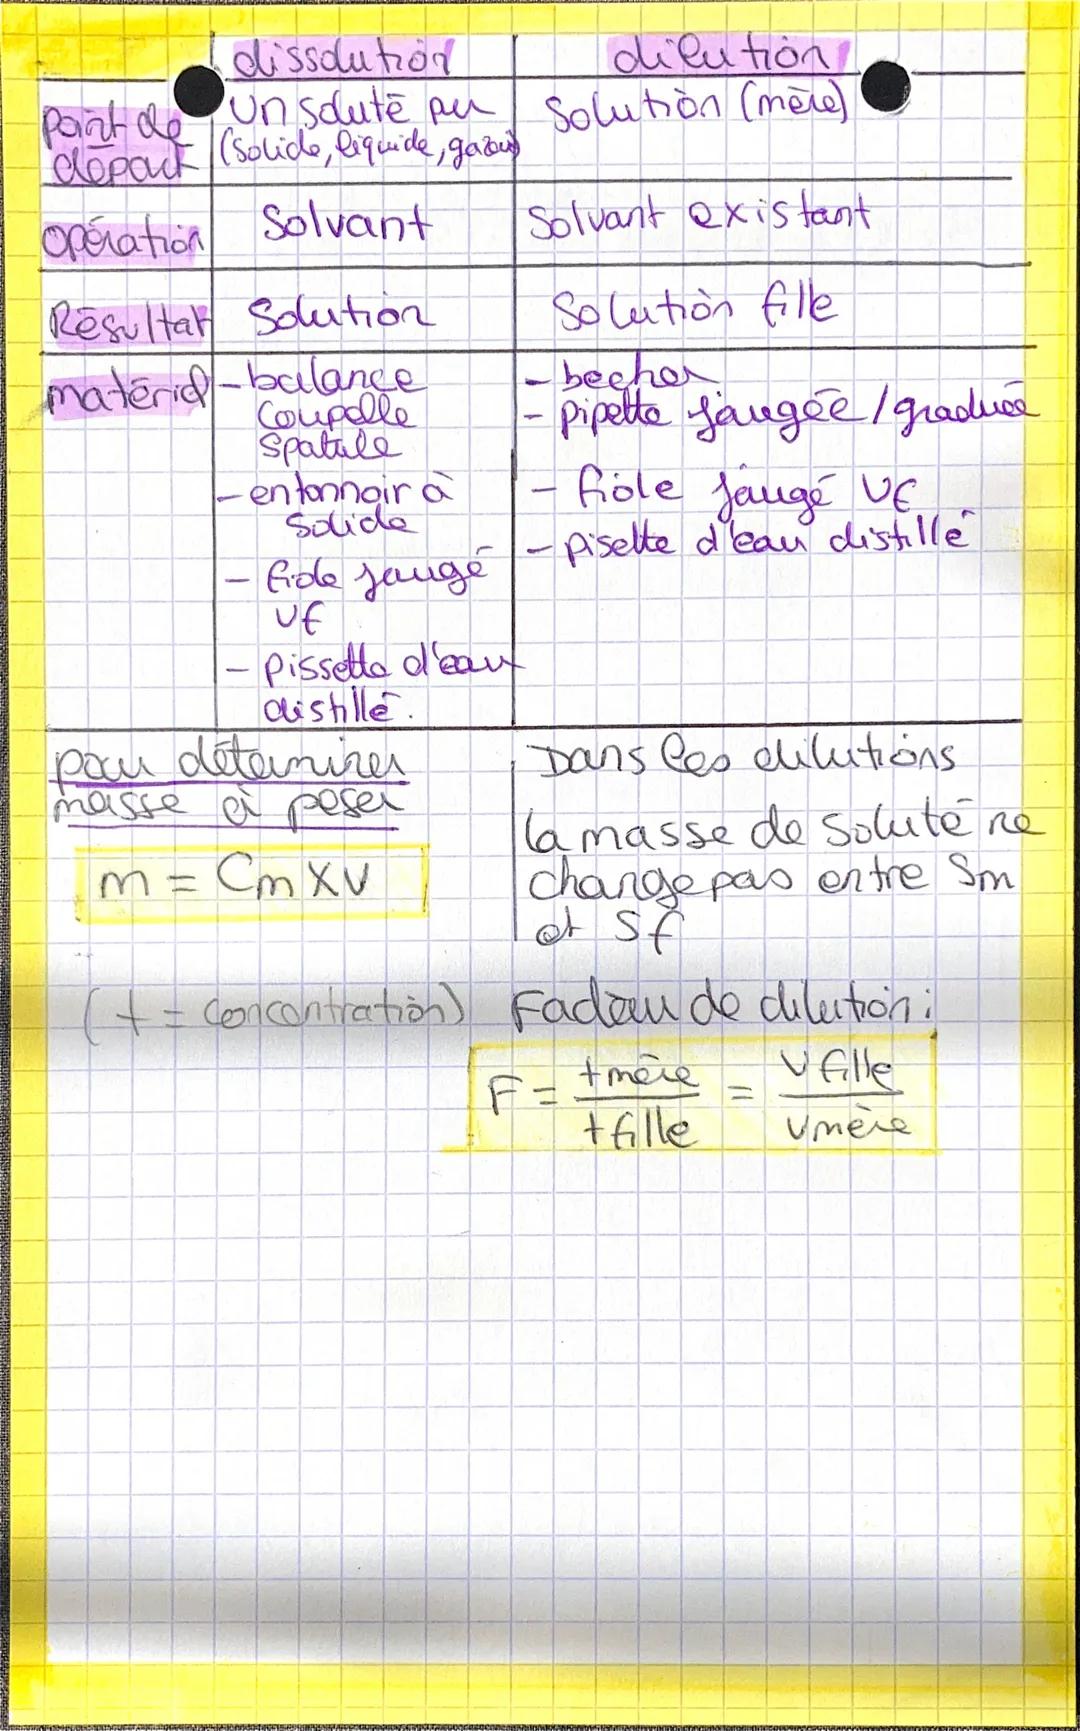 dissolution dilution
point de départ
Un soluté pur
(solide, liquide, gazeux)
Solution (mère)
opération
Solvant
Solvant existant
Résultat
Solution
Solution fille
matériel
- balance
coupelle
spatule
- entonnoir à
solide
- fiole jaugé
Vf
- pissette d'eau
distillé.
- becher
- pipette jaugée/graduée
- fiole jaugé Vf
- pisette d'eau distillé
pour déterminer
masse à peser
m = Cm x V
(t = concentration)
Dans les dilutions
la masse de soluté ne
change pas entre Sm
et Sf
Facteur de dilution :
F = t mère / t fille = V fille / V mère